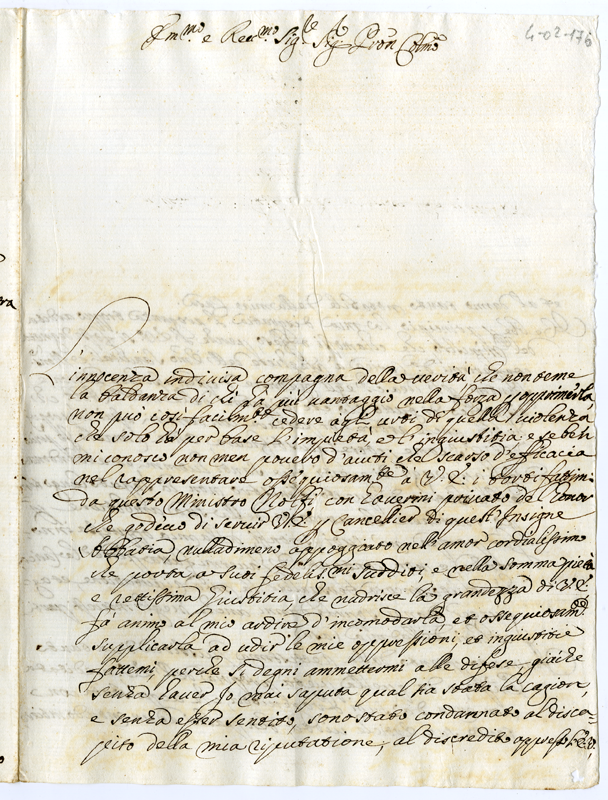 Em.mo e Rev.mo Sig.re Sig.r Pron Colmo
4-02-176
L'innocenza indivisa compagna della verità che non teme
la baldanza di chi ha più vantaggio nella forza p opprimerla
non può così facilm.te cedere agli urti di quella violenza,
che solo hà per base l'impietà, e l'ingiustitia, e se beh
mi conosco non men povero d'aiuti che scarso d'efficacia
nel rappresentare ossequiosam.te à V. E. i torti fattim.
da questo Ministro Nolfi con havermi privato de l'honor
che godevo di servir V. E. p Cancellier di quest'Insigne
Abbatia, nulladimeno appoggiato nell'amor cordialissimo
che porta a suoi fedeliss.mi sudditi e nella somma pietà
e rettissima giustitia, che nudrisce la grandezza di V. E.
fà animo al mio ardire d'incomodarla, et ossequiosam.te
supplicarla ad udir le mie oppressioni, et ingiustitie
fattemi, perche si degni ammettermi alle difese, giache
senza haver Io mai saputa qual sia stata la cagion,
e senza esser sentito, sono stato condannato al disca-
pito della mia riputatione, al discredito appresso